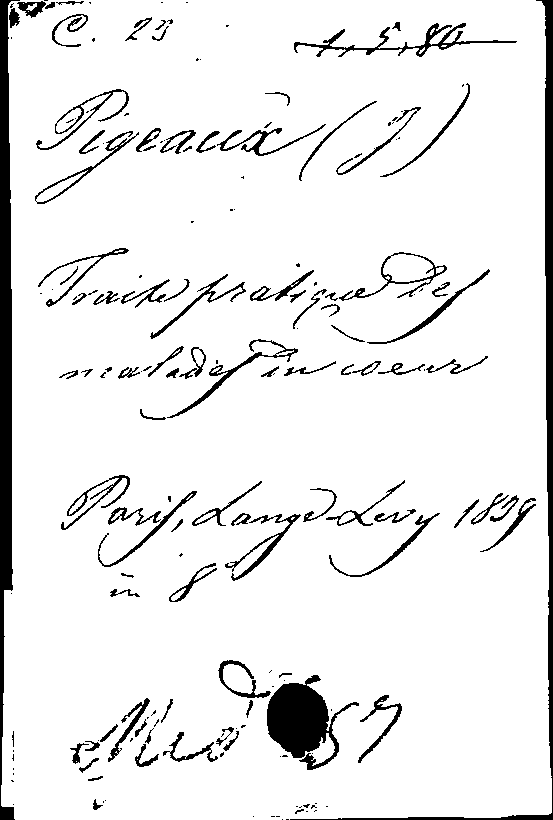 C. 23
1.5.80
Pigeaux (J)
Traite pratique des
malades du coeur
Paris, Lange-Levy 1839
in 8°
Med 57